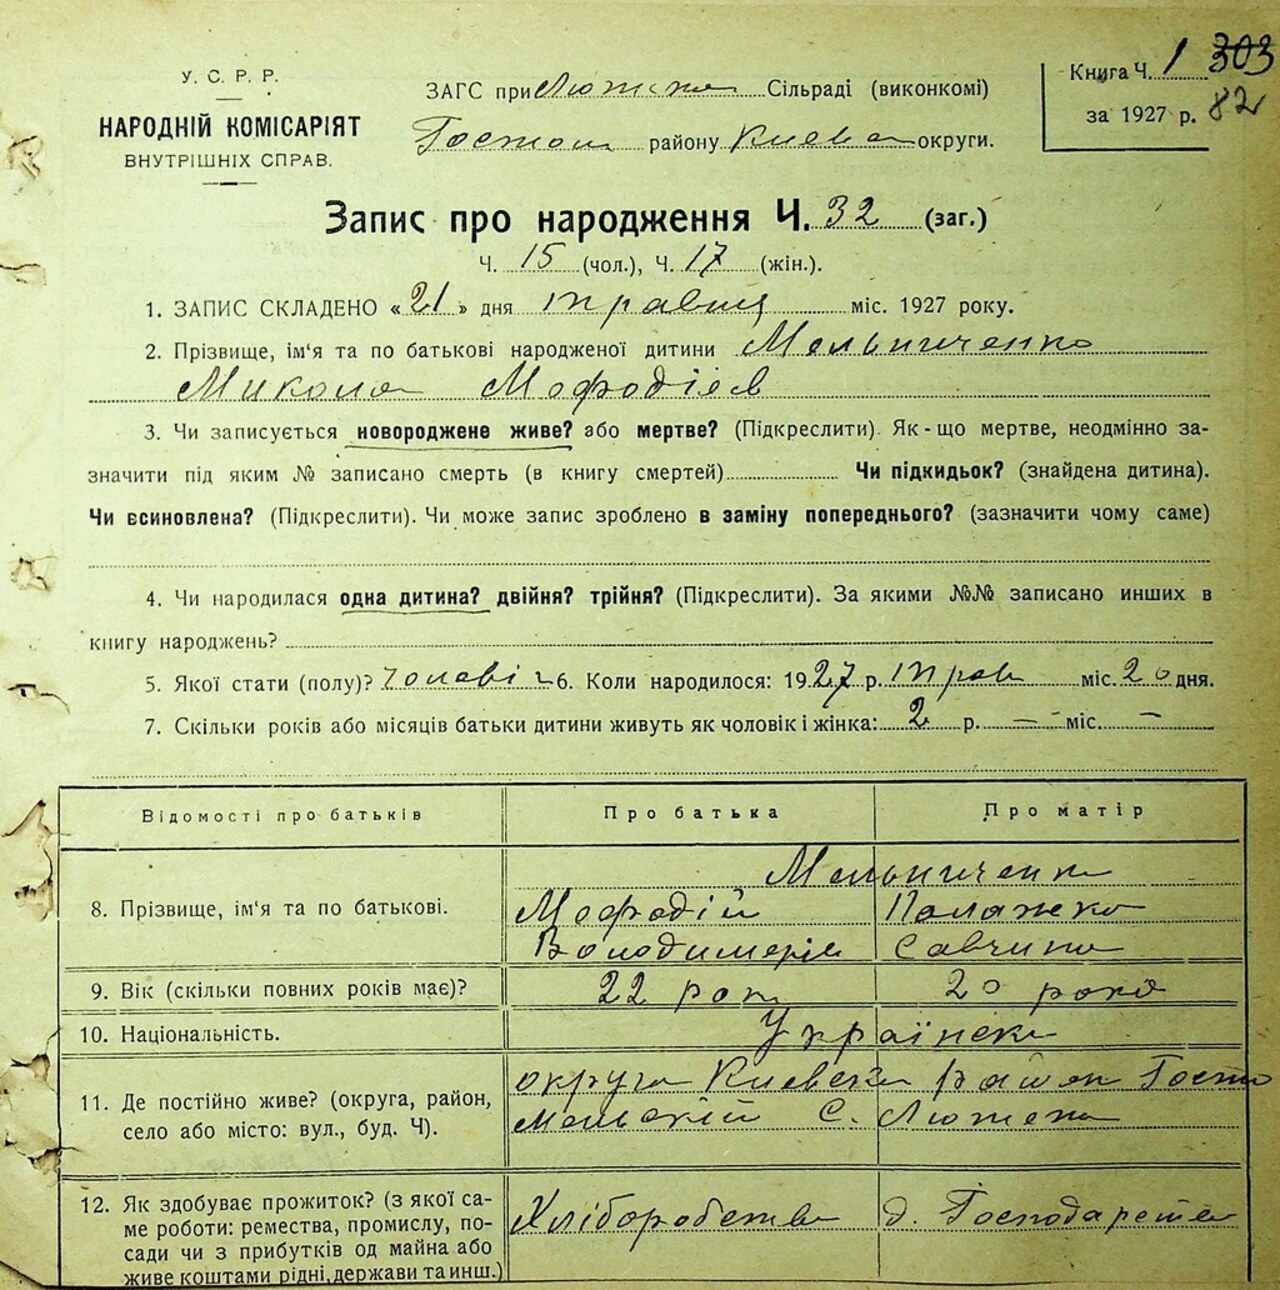 У. С. Р. Р.
НАРОДНІЙ КОМІСАРІЯТ
ВНУТРІШНІХ СПРАВ.
ЗАГС при Сільраді (виконкомі)
Гостом району Киевс округи.
Книга Ч. 1 303
за 1927 р. 82
Запис про народження Ч. 32 (заг.)
Ч. 15 (чол.), Ч. 17 (жін.).
1. ЗАПИС СКЛАДЕНО « 21 » дня травця міс. 1927 року.
2. Прізвище, ім'я та по батькові народженої дитини Мельниченко
Микола Мефодіев
3. Чи записується новороджене живе? або мертве? (Підкреслити). Як-що мертве, неодмінно за-
значити під яким № записано смерть (в книгу смертей) Чи підкидьок? (знайдена дитина).
Чи всиновлена? (Підкреслити). Чи може запис зроблено в заміну попереднього? (зазначити чому саме)
4. Чи народилася одна дитина? двійня? трійня? (Підкреслити). За якими №№ записано инших в
книгу народжень?
5. Якої стати (полу)? Чоловіч 6. Коли народилося: 1927 р. трав міс. 20 дня.
7. Скільки років або місяців батьки дитини живуть як чоловік і жінка: 2 р. — міс. —
Відомості про батьків Про батька Про матір
Мельниченки
8. Прізвище, ім'я та по батькові. Мефодій
Володимерів Савчина
9. Вік (скільки повних років має)? 22 рок 20 років
10. Національність. Українск
11. Де постійно живе? (округа, район, округа Киевска район Госто
село або місто: вул., буд. Ч). мельский С.
12. Як здобуває прожиток? (з якої са- Хліборобство д. Господарство
ме роботи: ремества, промислу, по-
сади чи з прибутків од майна або
живе коштами рідні, держави та инш.)